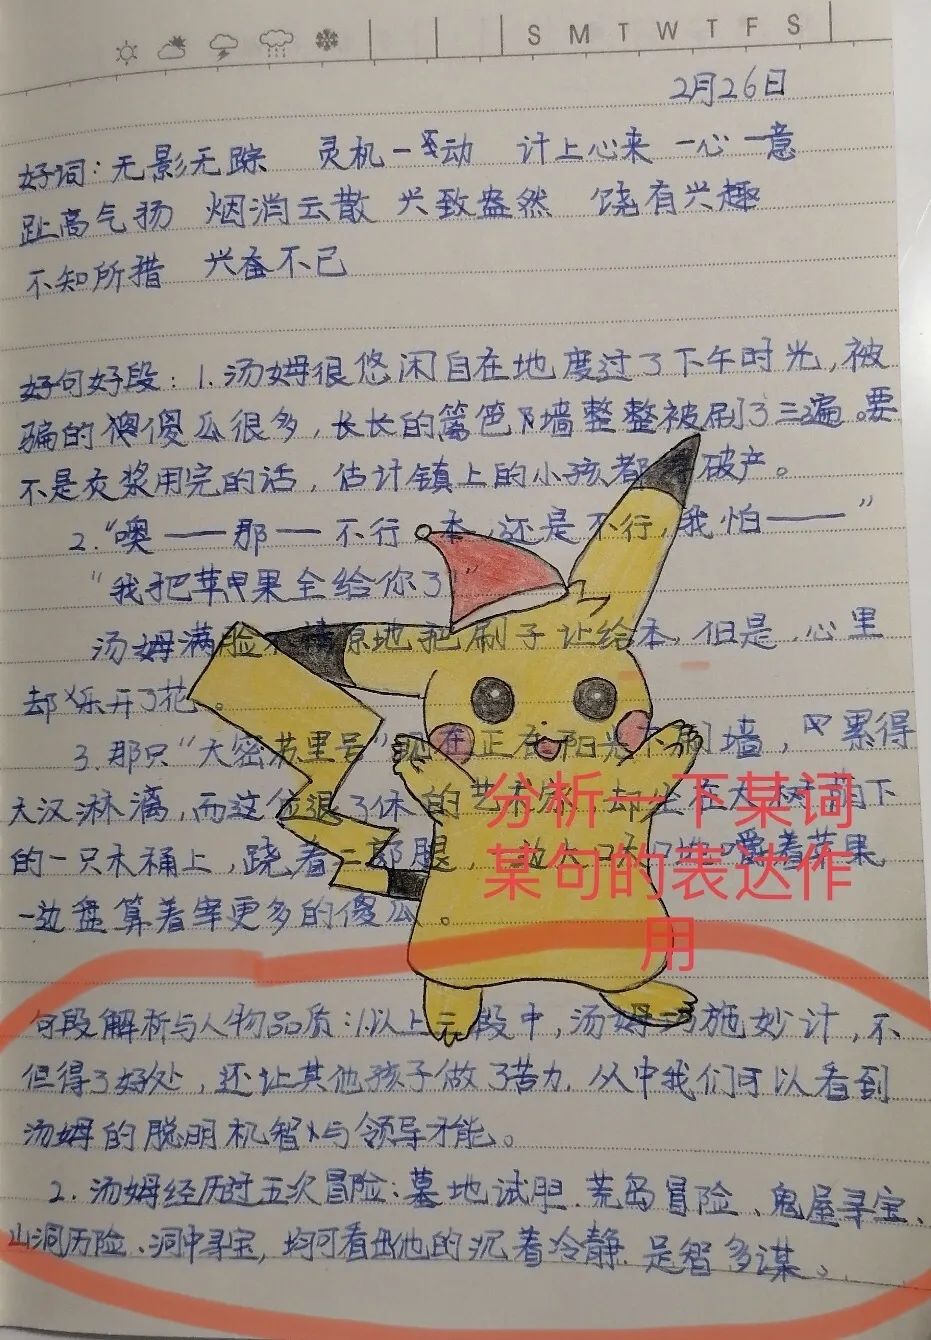 S M T W T F S
2月26日
好词：无影无踪 灵机一动 计上心来 一心一意
趾高气扬 烟消云散 兴致盎然 饶有兴趣
不知所措 兴奋不已
好句好段：1.汤姆很悠闲自在地度过了下午时光，被
骗的傻瓜很多，长长的篱笆墙整整被刷了三遍。要
不是灰浆用完的话，估计镇上的小孩都 破产。
2.“噢——那——不行，本，还是不行，我怕——”
“我把苹果全给你了”
汤姆满脸不情愿地把刷子让给本，但是，心里
却乐开了花。
3.那只“大密苏里号”现在正在阳光下刷墙，累得
大汉淋漓，而这位退了休的艺术家，却坐在大树荫下
的一只木桶上，跷着二郎腿，边大口大口地嚼着苹果，
一边盘算着宰更多的傻瓜。
分析一下某词
某句的表达作
用
句段解析与人物品质：1.以上三段中，汤姆巧施妙计，不
但得了好处，还让其他孩子做了苦力，从中我们可以看到
汤姆的聪明机智与领导才能。
2.汤姆经历过五次冒险：墓地试胆、荒岛冒险、鬼屋寻宝、
山洞历险、洞中寻宝，均可看出他的沉着冷静、足智多谋。